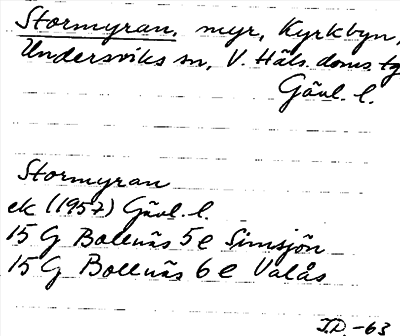 Stormyran, myr, Kyrkbyn,
Undersviks sn, V. Häls. doms. tg
Gävl. l.
Stormyran
ek (1957) Gävl. l.
15 G Bollnäs 5 e Simsjön
15 G Bollnäs 6 e Valås
J.D. -63